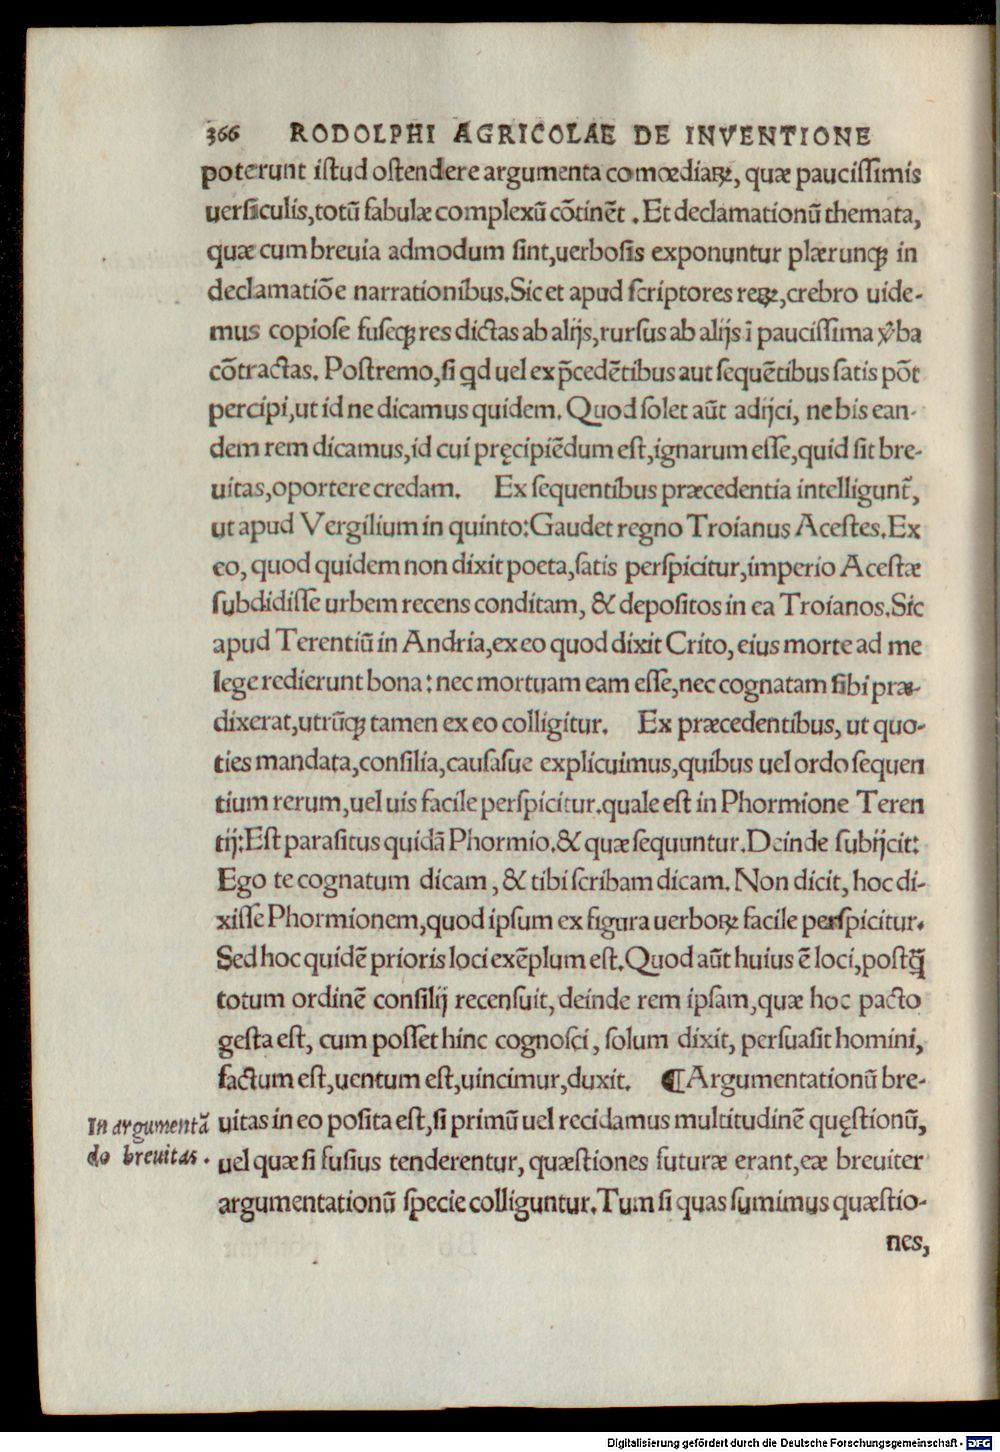 366 RODOLPHI AGRICOLAE DE INVENTIONE
poterunt iſtud oſtendere argumenta comœdiaꝝ, quæ pauciſſimis
uerſiculis,totũ fabulæ complexũ cõtinẽt . Et declamationũ themata,
quæ cum breuia admodum ſint,uerboſis exponuntur plærunqꝫ in
declamatiõe narrationibus.Sic et apud ſcriptores reꝝ,crebro uide-
mus copioſe fuſeqꝫ res dictas ab alijs,rurſus ab alijs ĩ pauciſſima ỽba
cõtractas. Poſtremo,ſi qd uel ex p̃cedẽtibus aut ſequẽtibus ſatis põt
percipi,ut id ne dicamus quidem. Quod ſolet aũt adijci, ne bis ean-
dem rem dicamus,id cui pręcipiẽdum eſt,ignarum eſſe,quid ſit bre-
uitas,oportere credam. Ex ſequentibus præcedentia intelligunt᷑,
ut apud Vergilium in quinto:Gaudet regno Troianus Aceſtes.Ex
eo, quod quidem non dixit poeta,ſatis perſpicitur,imperio Aceſtæ
ſubdidiſſe urbem recens conditam, & depoſitos in ea Troianos.Sic
apud Terentiũ in Andria,ex eo quod dixit Crito, eius morte ad me
lege redierunt bona: nec mortuam eam eſſe,nec cognatam ſibi præ-
dixerat,utrũqꝫ tamen ex eo colligitur. Ex præcedentibus, ut quo-
ties mandata,conſilia,cauſasue explicuimus,quibus uel ordo ſequen
tium rerum,uel uis facile perſpicitur.quale eſt in Phormione Teren
tij:Eſt paraſitus quidã Phormio.& quæ ſequuntur.Deinde ſubijcit:
Ego te cognatum dicam, & tibi ſcribam dicam. Non dicit, hoc di-
xiſſe Phormionem,quod ipſum ex figura uerboꝝ facile perſpicitur.
Sed hoc quidẽ prioris loci exẽplum eſt.Quod aũt huius ẽ loci,poſtq̃
totum ordinẽ conſilij recenſuit, deinde rem ipſam,quæ hoc pacto
geſta eſt, cum poſſet hinc cognoſci, ſolum dixit, perſuaſit homini,
factum eſt,uentum eſt,uincimur,duxit. ¶Argumentationũ bre-
uitas in eo poſita eſt,ſi primũ uel recidamus multitudinẽ quęſtionũ,
uel quæ ſi fuſius tenderentur, quæſtiones futuræ erant,eæ breuiter
argumentationũ ſpecie colliguntur.Tum ſi quas ſumimus quæſtio-
nes,
In argumentã
do breuitas.
Digitalisierung gefördert durch die Deutsche Forschungsgemeinschaft - DFG